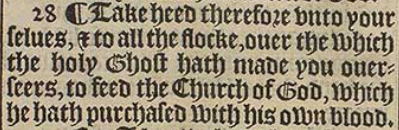 28 ¶ Take heed therefore vnto your
ſelues, & to all the flocke, ouer the which
the holy Ghoſt hath made you ouer-
ſeers, to feed the Church of God, which
he hath purchaſed with his own blood.